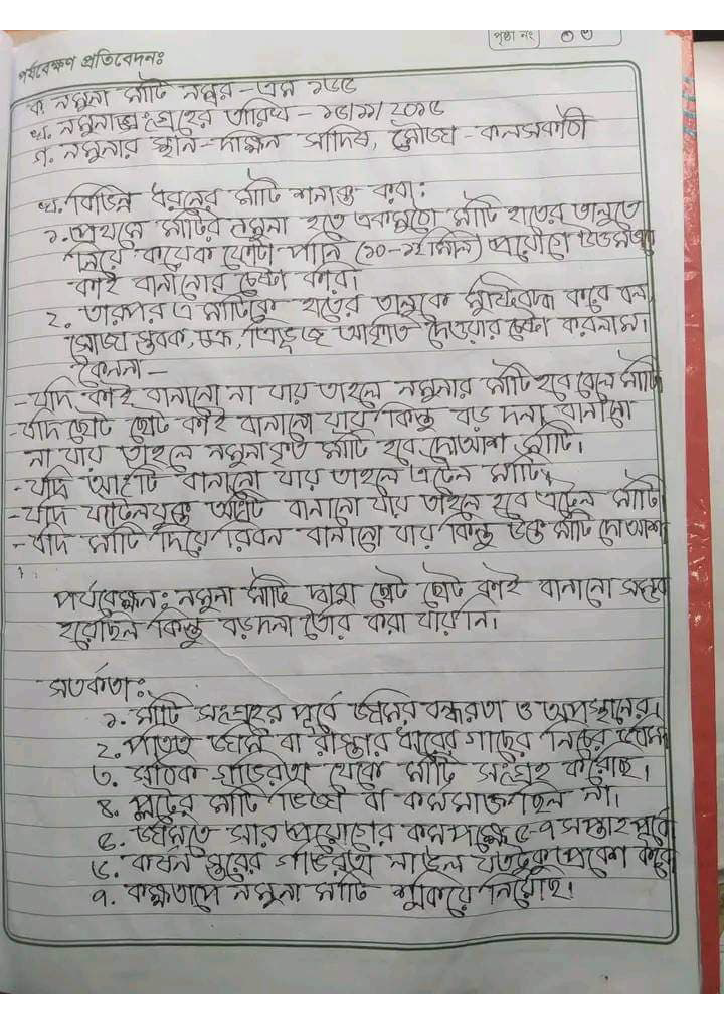 পৃষ্ঠা নং ০৩
পর্যবেক্ষণ প্রতিবেদনঃ
ক নমুনা মাটি নম্বর - এস ১৫৫
খ. নমুনা সংগ্রহের তারিখ - ১৬/১১/২০১৫
গ. নমুনার স্থান - দক্ষিন সাদিষ, মৌজা - কলসকাঠী
খ. বিভিন্ন ধরনের মাটি শনাক্ত করা:
১. প্রথমে মাটির নমুনা হতে একমুঠো মাটি হাতের তালুতে
নিয়ে কয়েক ফোটা পানি (১০-১২ মিলি) প্রয়োগে
কাই বানানোর চেষ্টা করি।
২. তারপর এ মাটিকে হাতের তালুকে মুষ্টিবদ্ধ করে বল
সোজা স্তবক, চক্র, ত্রিভুজ আকৃতি দেওয়ার চেষ্টা করলাম।
কেননা -
- যদি কাই বানানো না যায় তাহলে নমুনার মাটি হবে বেলে মাটি
- যদি ছোট ছোট কাই বানানো যায় কিন্তু বড় দলা বানানো
না যায় তাহলে নমুনাকৃত মাটি হবে দোআশ মাটি।
- যদি আংটি বানানো যায় তাহলে এটেল মাটি।
- যদি ফাটলযুক্ত আংটি বানানো যায় তাহলে হবে এটেল মাটি
- যদি মাটি দিয়ে রিবন বানানো যায় কিন্তু উক্ত মাটি দোআশ
পর্যবেক্ষন: নমুনা মাটি দ্বারা ছোট ছোট কাই বানানো সম্ভব
হয়েছিল কিন্তু বড় দলা তৈরি করা যায়নি।
সতর্কতা:
১. মাটি সংগ্রহের পূর্বে জমির বন্ধুরতা ও অপস্থানের।
২. পতিত জমি বা রাস্তার ধারের গাছের নিচের
৩. সঠিক গভিরতা থেকে মাটি সংগ্রহ করেছি।
৪. প্লটের মাটি ভিজা বা কর্দমাক্ত ছিল না।
৫. জমিতে সার প্রয়োগের কমপক্ষে ৫-৭ সপ্তাহ পূর্বে
৬. কর্ষন স্তরের গভিরতা লাঙল যতটুকু প্রবেশ করে
৭. কক্ষতাপে নমুনা মাটি শুকিয়ে নিয়েছি।